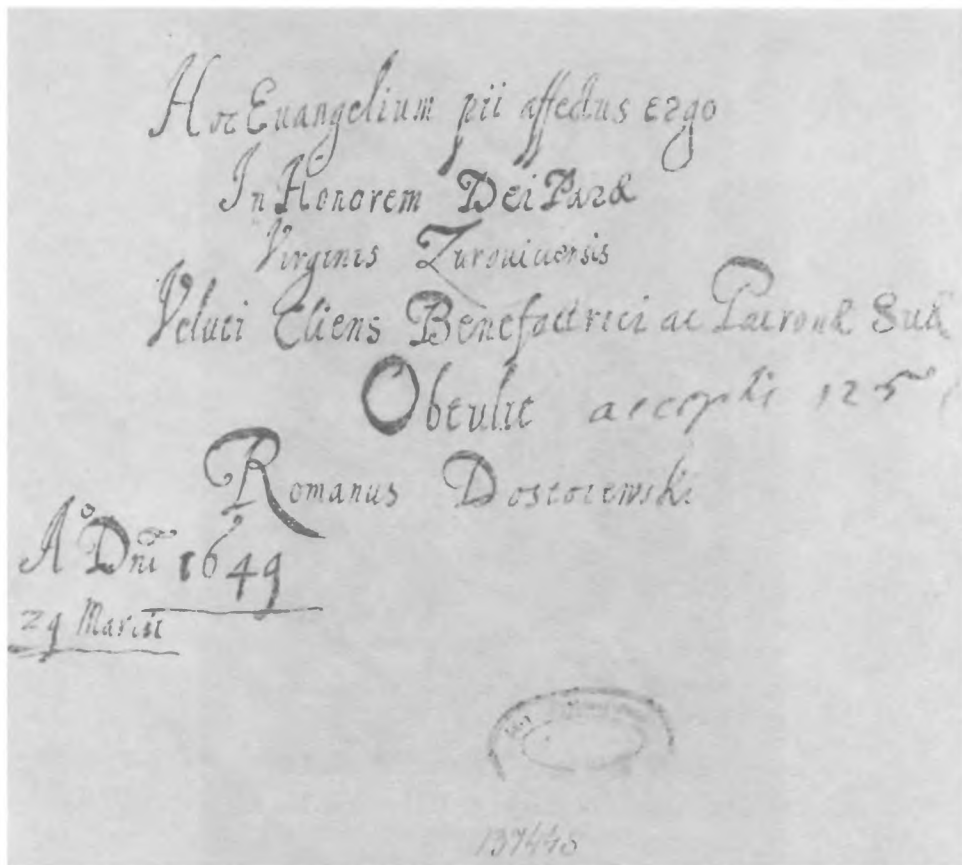 Hoc Euangelium pii affectus ergo
In Honorem Dei Paræ
Virginis Zurouicensis
Veluti Cliens Benefactrici ac Patronæ Suæ
Obtulit
Romanus Dostoiewski
Aº Dni 1649
29 Martii
137448